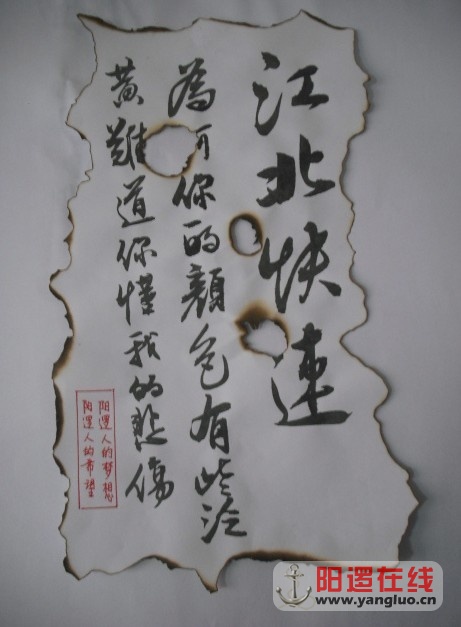 江北快速
為何你的顏色有些泛
黃難道你懂我的悲傷
阳逻人的梦想
阳逻人的希望
阳逻在线
www.yangluo.cn